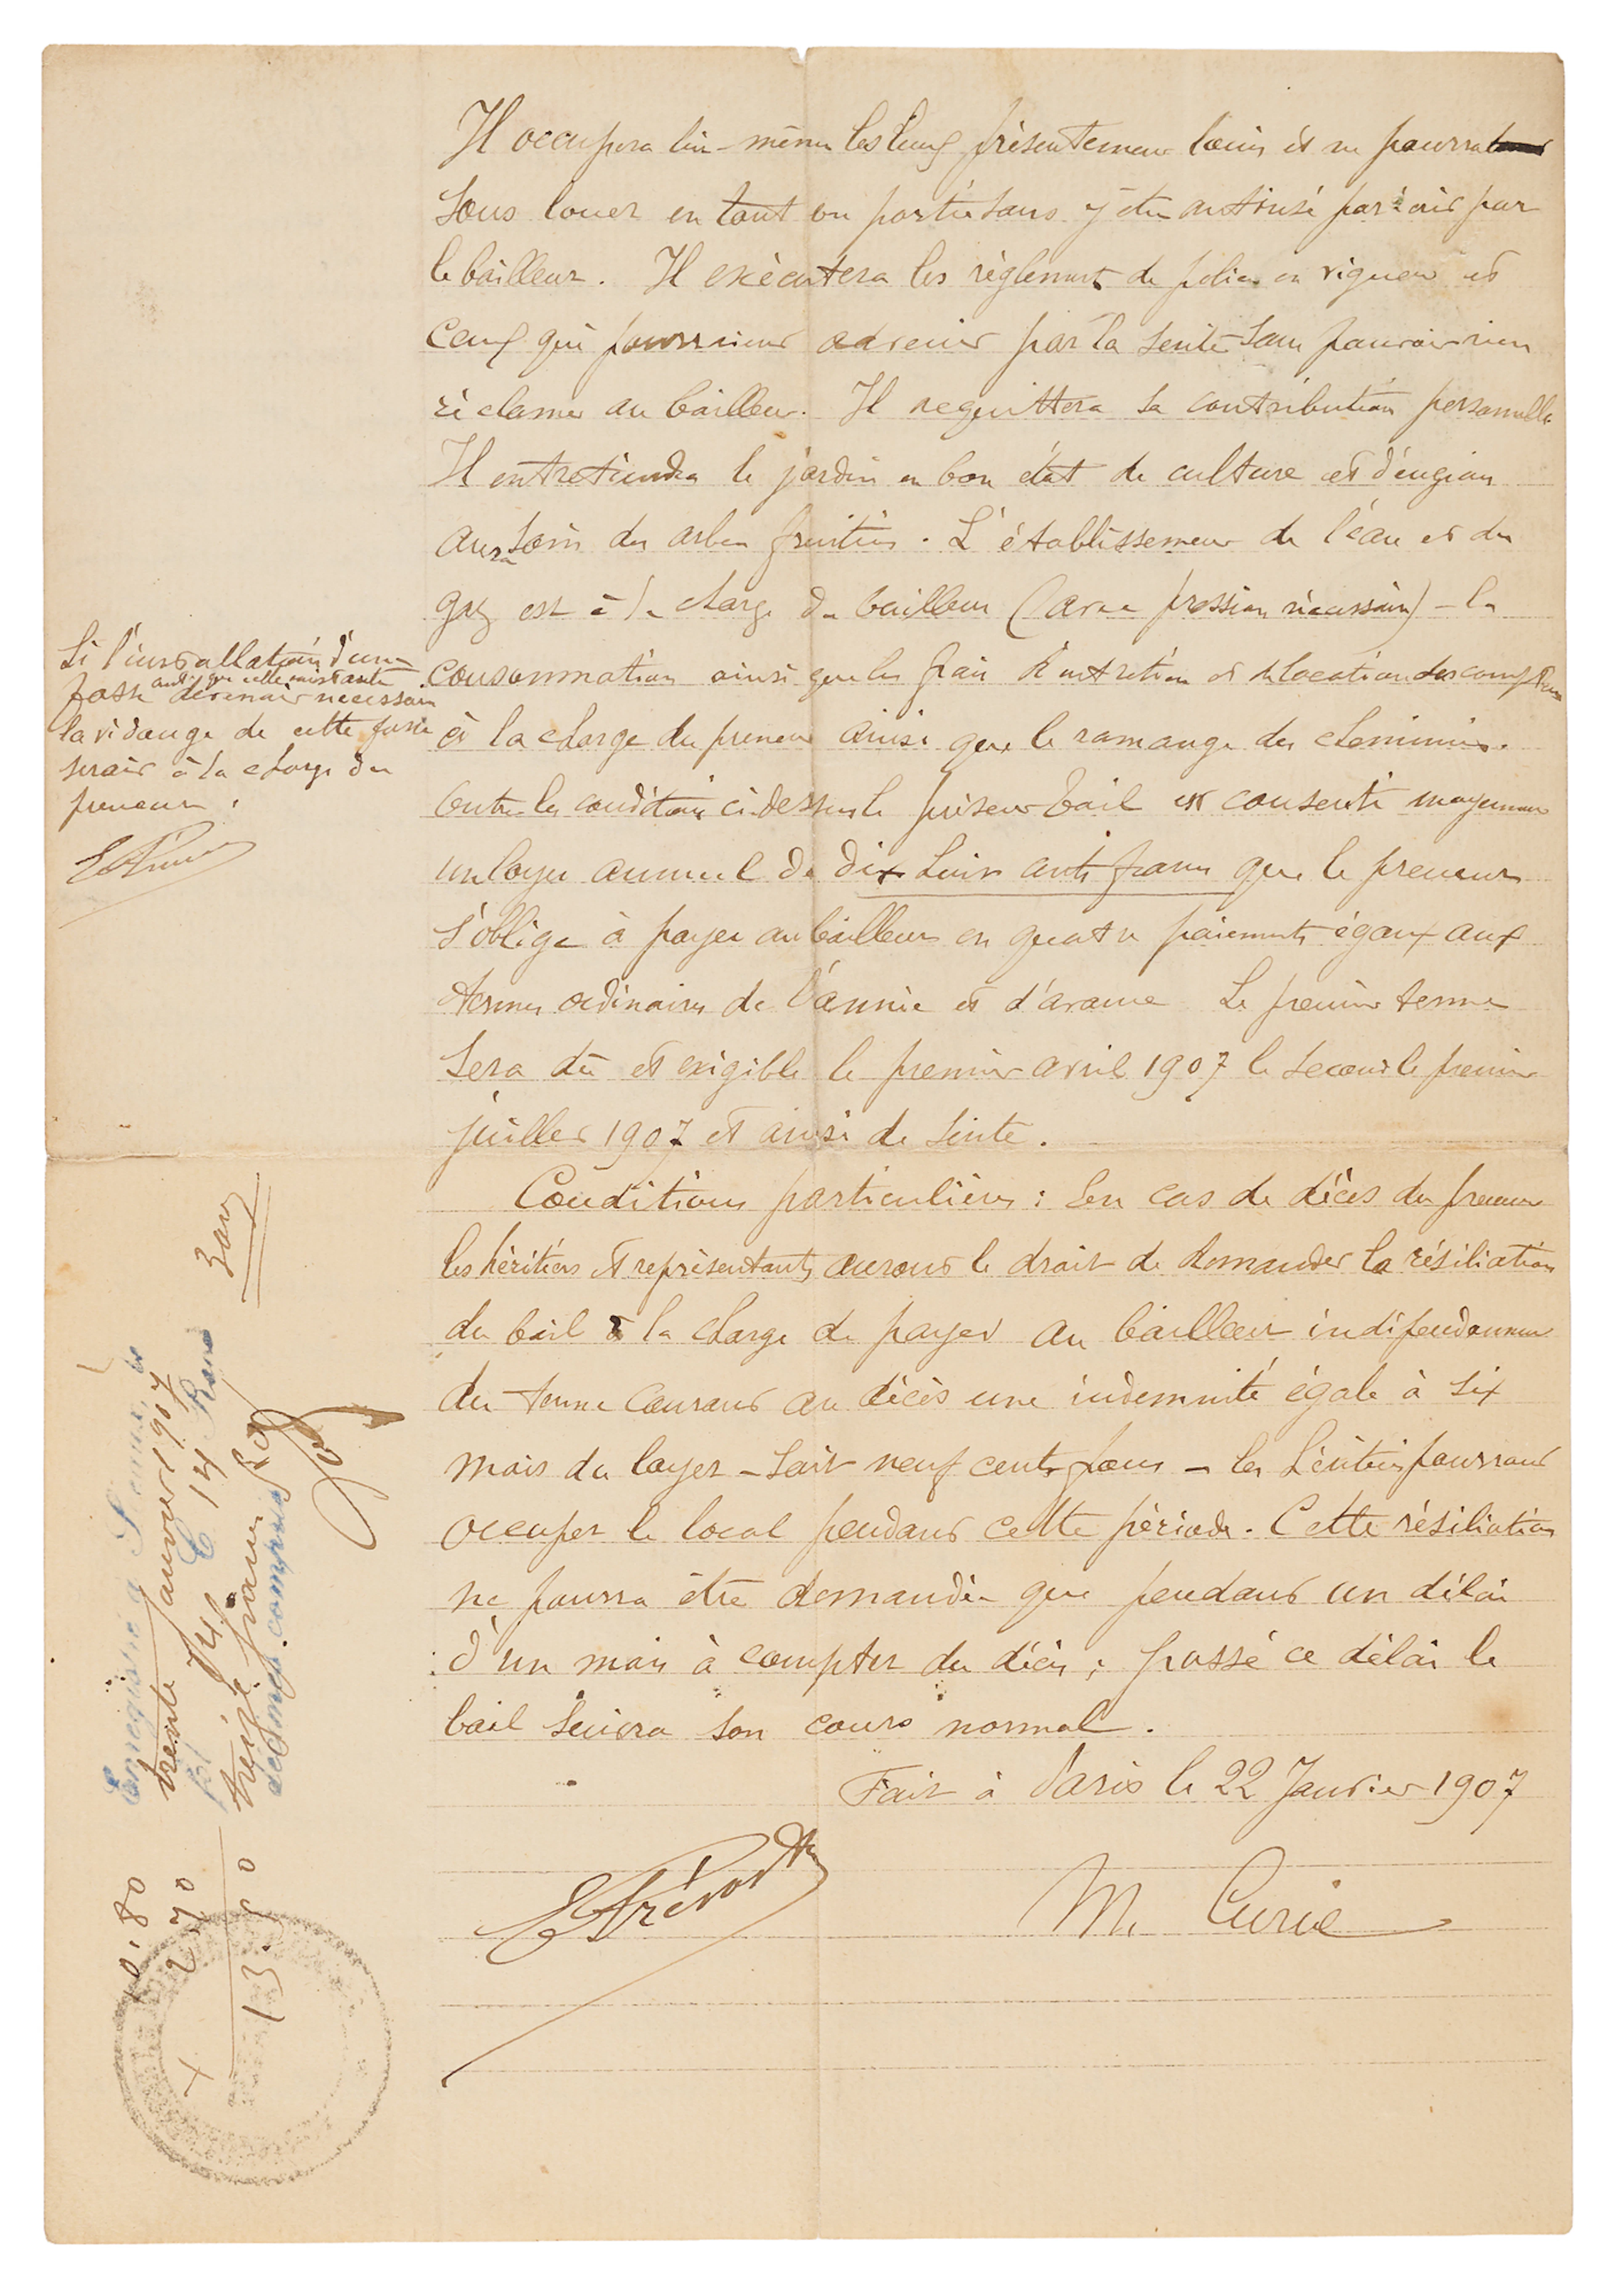 Il occupera lui-même les lieux présentement loués et ne pourra
sous louer en tout ou partie sans y être autorisé par écrit par
le bailleur. Il exécutera les règlements de police en vigueur et
ceux qui pourraient advenir par la suite sans pouvoir rien
réclamer au bailleur. Il acquittera sa contribution personnelle
Il entretiendra le jardin en bon état de culture et d'engrais
aura soin des arbres fruitiers. L'établissement de l'eau et du
gaz est à la charge du bailleur (avec pression nécessaire) - la
consommation ainsi que les frais d'entretien et de location des compteurs
à la charge du preneur ainsi que le ramonage des cheminées.
Outre les conditions ci-dessus le présent bail est consenti moyennant
un loyer annuel de dix huit cents francs que le preneur
s'oblige à payer au bailleur en quatre paiements égaux aux
termes ordinaires de l'année et d'avance Le premier terme
sera dû et exigible le premier avril 1907 le second le premier
juillet 1907 et ainsi de suite.
Si l'installation d'une
fosse autre que celle existante devenait nécessaire
la vidange de cette fosse
serait à la charge du
preneur.
Conditions particulières: En cas de décès du preneur
les héritiers et représentants auront le droit de demander la résiliation
du bail à la charge de payer au bailleur indépendamment
du terme courant au décès une indemnité égale à six
mois de loyer - soit neuf cents francs - les héritiers pourront
occuper le local pendant cette période. Cette résiliation
ne pourra être demandée que pendant un délai
d'un mois à compter du décès; passé ce délai le
bail suivra son cours normal.
Fait à Paris le 22 Janvier 1907
E Prévost M. Curie
Enregistré à
trente janvier 1907
14
treize francs
décimes compris
3 ans
10.80
2.70
13.50